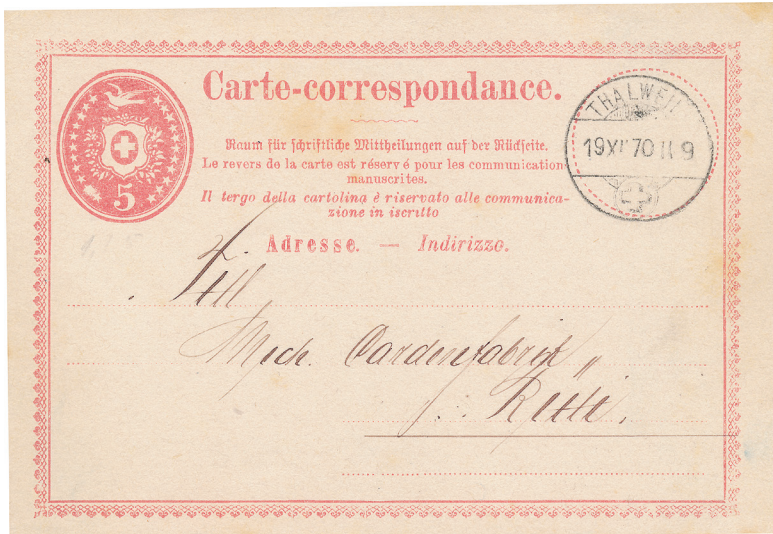 Carte-correspondance.
Raum für schriftliche Mittheilungen auf der Rückseite.
Le revers de la carte est réservé pour les communication
manuscrites.
Il tergo della cartolina è riservato alle communica-
zione in iscritto
Adresse. — Indirizzo.
5
THALWEIL
19 XI 70 II 9
Mech. Cardenfabrik